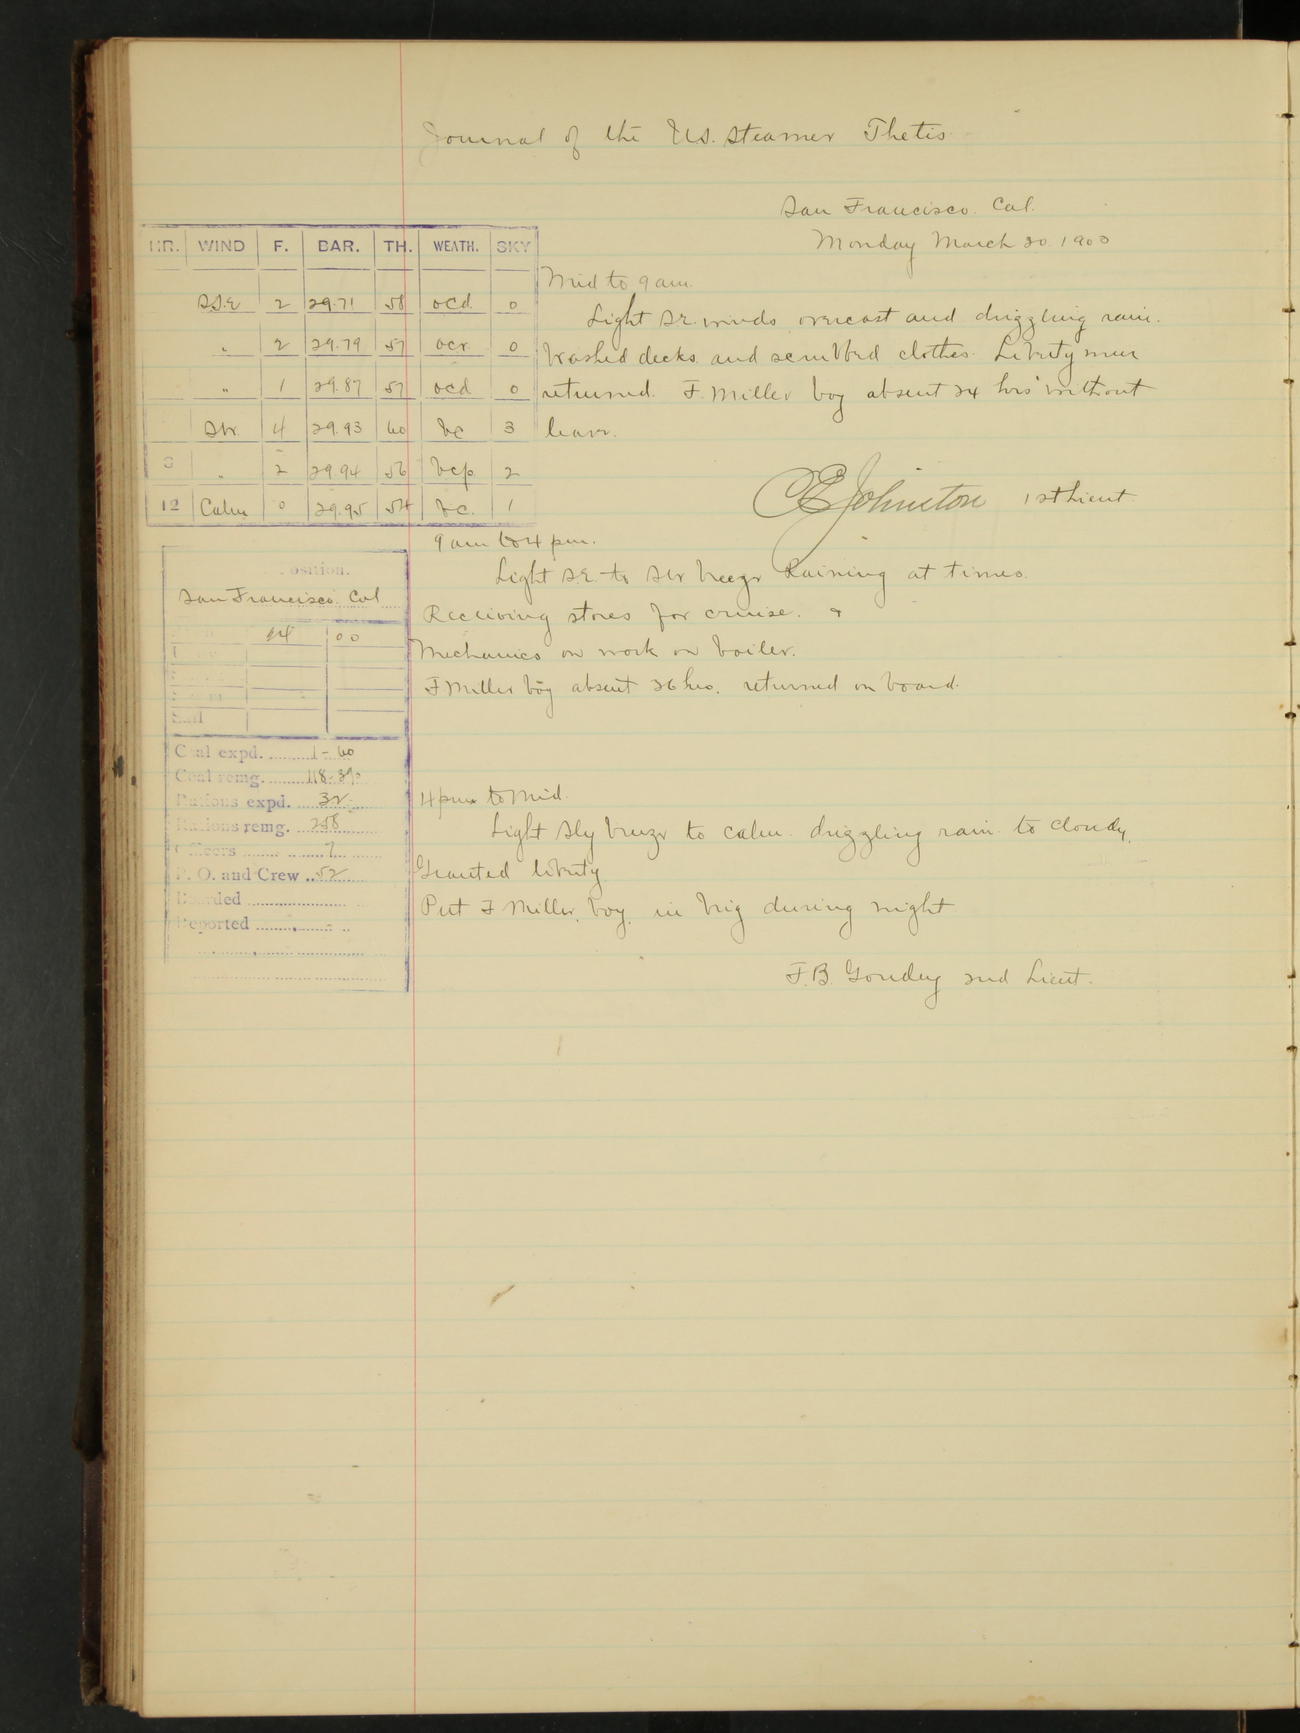 Journal of the U.S. Steamer Thetis
San Francisco. Cal.
Monday March 30. 1903
HR. WIND F. BAR. TH. WEATH. SKY
SSE 2 29.71 58 ocd. 0
" 2 29.79 57 ocr 0
" 1 29.87 57 ocd 0
SW. 4 29.93 60 bc 3
" 2 29.94 56 bcp 2
12 Calm 0 29.95 54 bc. 1
Mid to 9 am.
Light SE. winds, overcast and drizzling rain.
Washed decks and scrubbed clothes. Liberty men
returned. F. Miller boy absent 24 hrs without
leave.
C E Johnston 1st Lieut
9 am to 4 pm.
Light S.E. to SW breeze Raining at times.
Receiving stores for cruise.
Mechanics on work on boiler.
F Miller boy absent 26 hrs. returned on board.
osition.
San Francisco. Cal
24 00
Coal expd. 1-60
Coal remg. 118-39
Rations expd. 32
Rations remg. 258
Officers 7
P. O. and Crew 52
Boarded
Reported
4 pm to Mid.
Light Sly breeze to calm. drizzling rain to cloudy.
Granted liberty
Put F Miller, boy, in brig during night
F.B. Goudey 2nd Lieut.